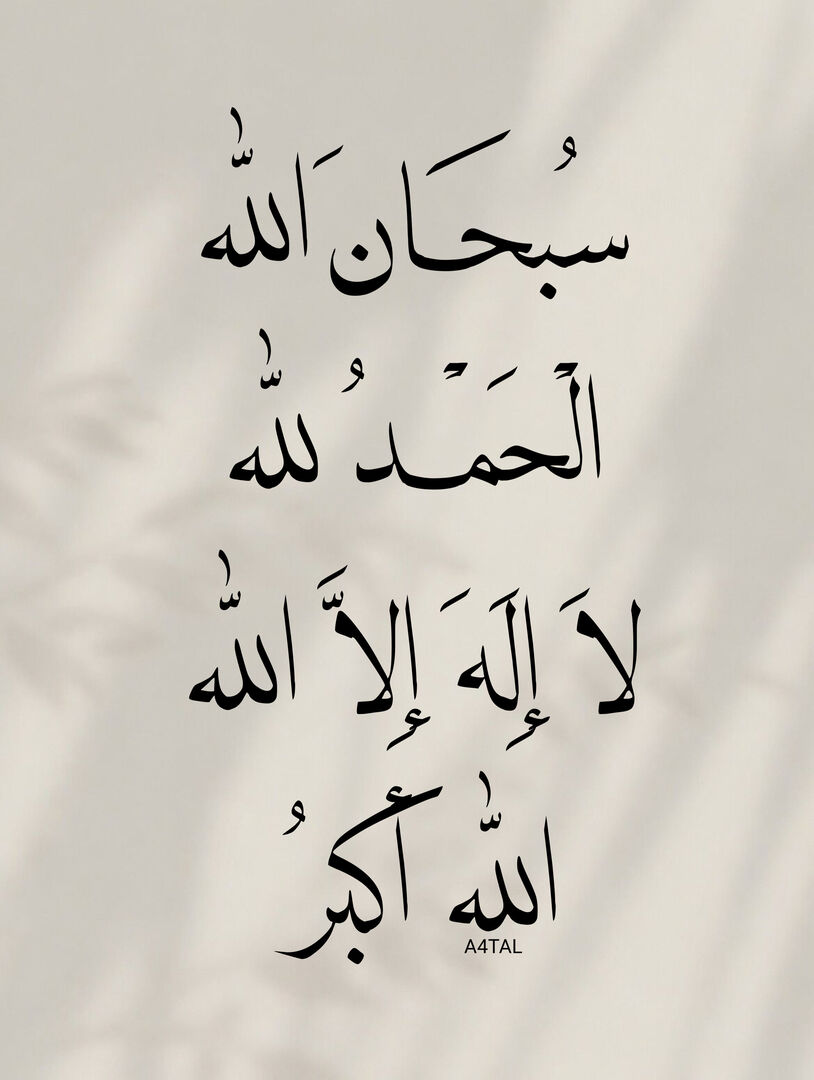 سُبحَان َالله
الْحَمْدُ لله
لاَ إِلَهَ إِلاَّ الله
الله أكبرُ
A4TAL